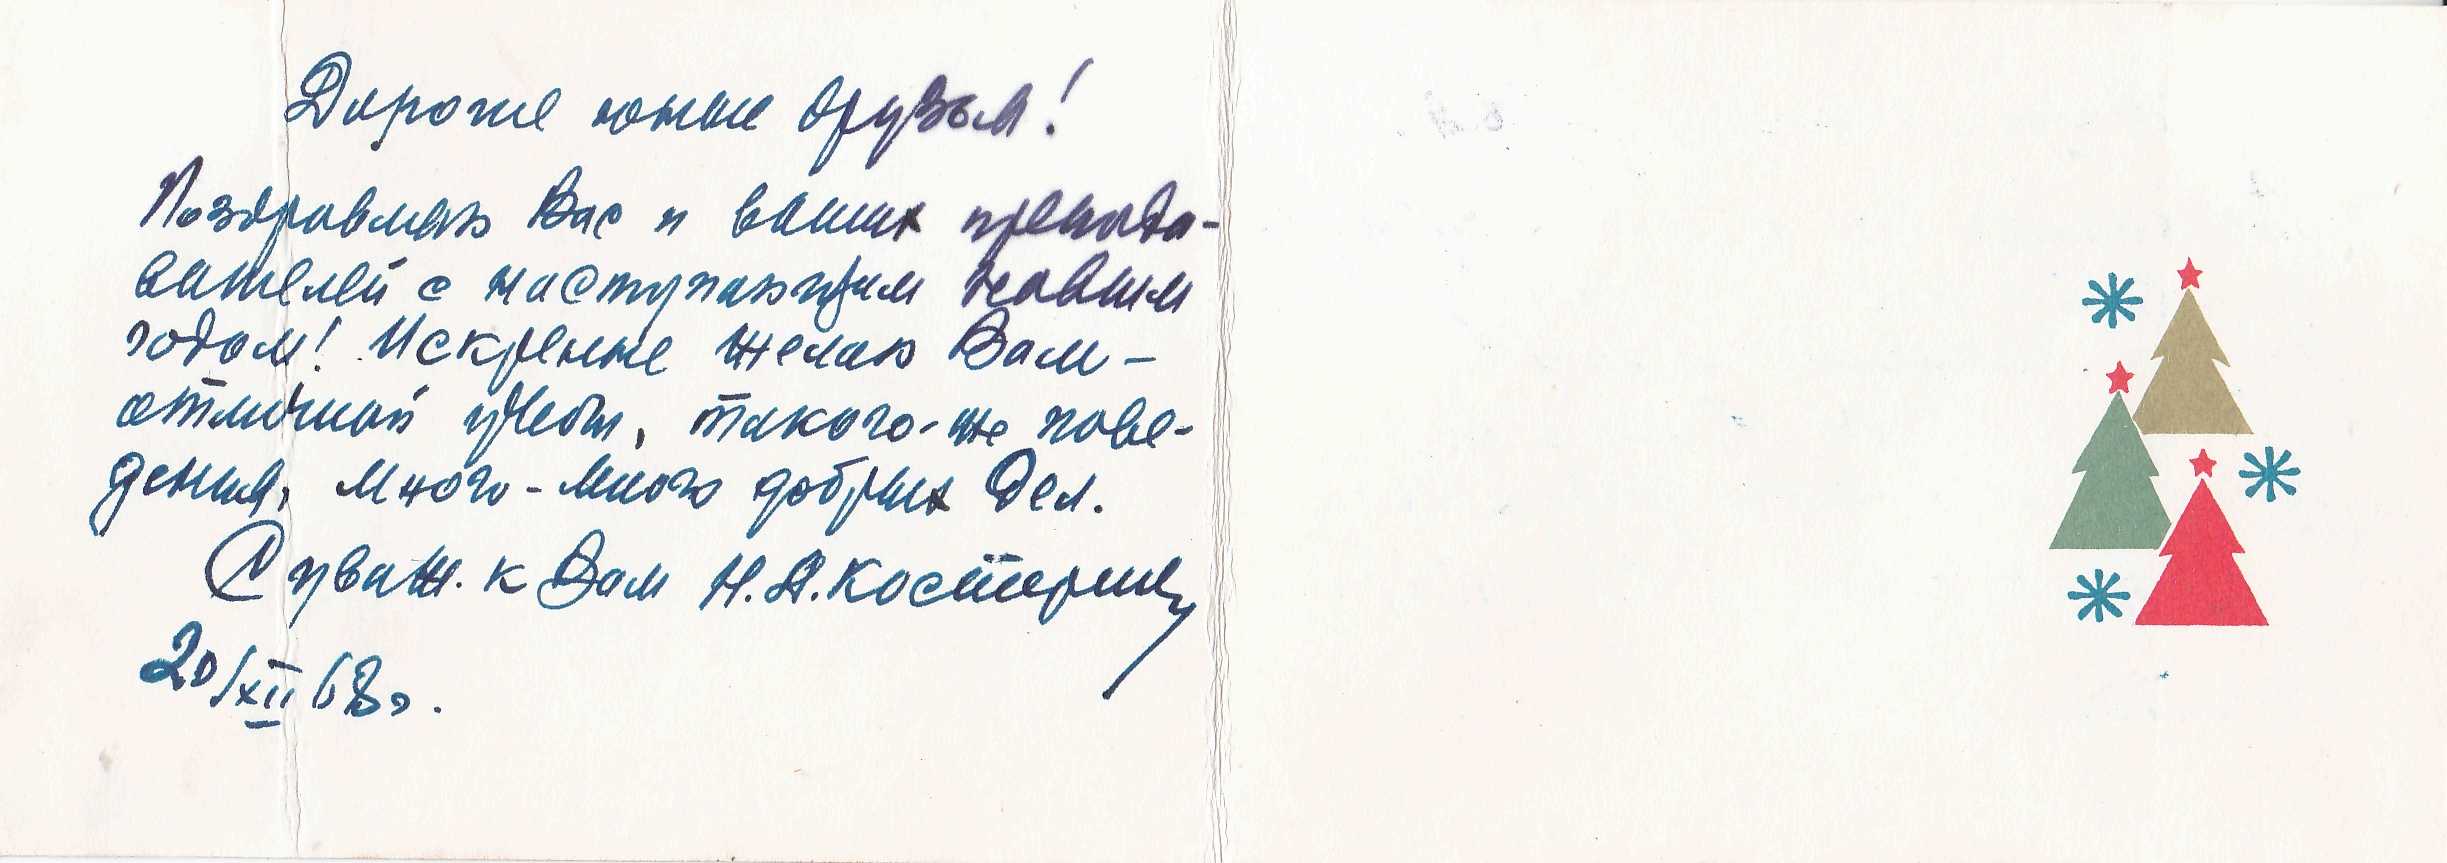 Дорогие юные друзья!
Поздравляю Вас и ваших препода-
вателей с наступающим новым
годом! Искренне желаю Вам –
отличной учебы, такого-же пове-
дения, много-много добрых дел.
С уваж. к Вам Н.А. Костерину
20/XII 68 г.